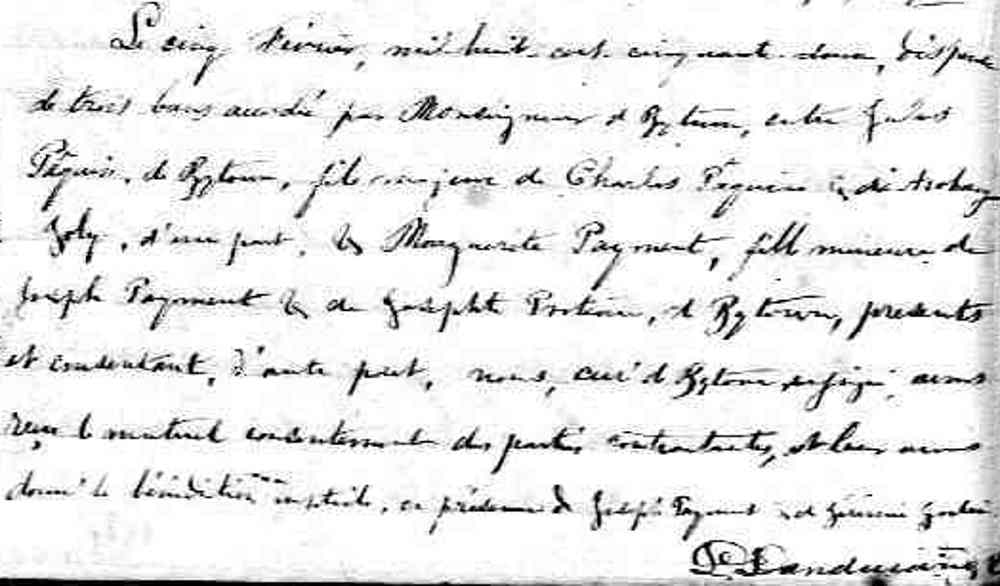 Le cinq Février, mil huit cent cinquante deux, dispense
de trois bans accordée par Monseigneur d Bytown, entre
Péquin, de Bytown, fils majeur de Charles Péquin & de
Joly, d'une part, & Marguerite Payment, fille mineure de
Joseph Payment & de Josephte Proteau, d Bytown, présents
et consentant, d'autre part, nous, curé d Bytown soussigné, avons
reçu le mutuel consentement des parties contractantes, et leur avons
donné la bénédiction nuptiale, en présence de Joseph Payment & de